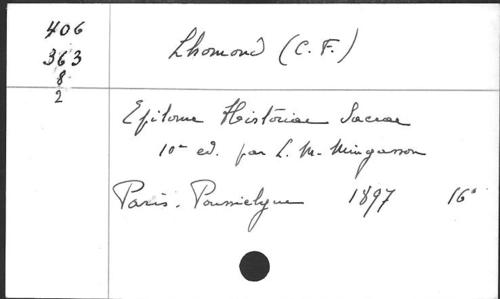 406
363
8
2
Lhomond (C. F.)
Epitome Historiae Sacrae
10e ed. par L. M. Mingasson
Paris. Poussielgue 1897 16°